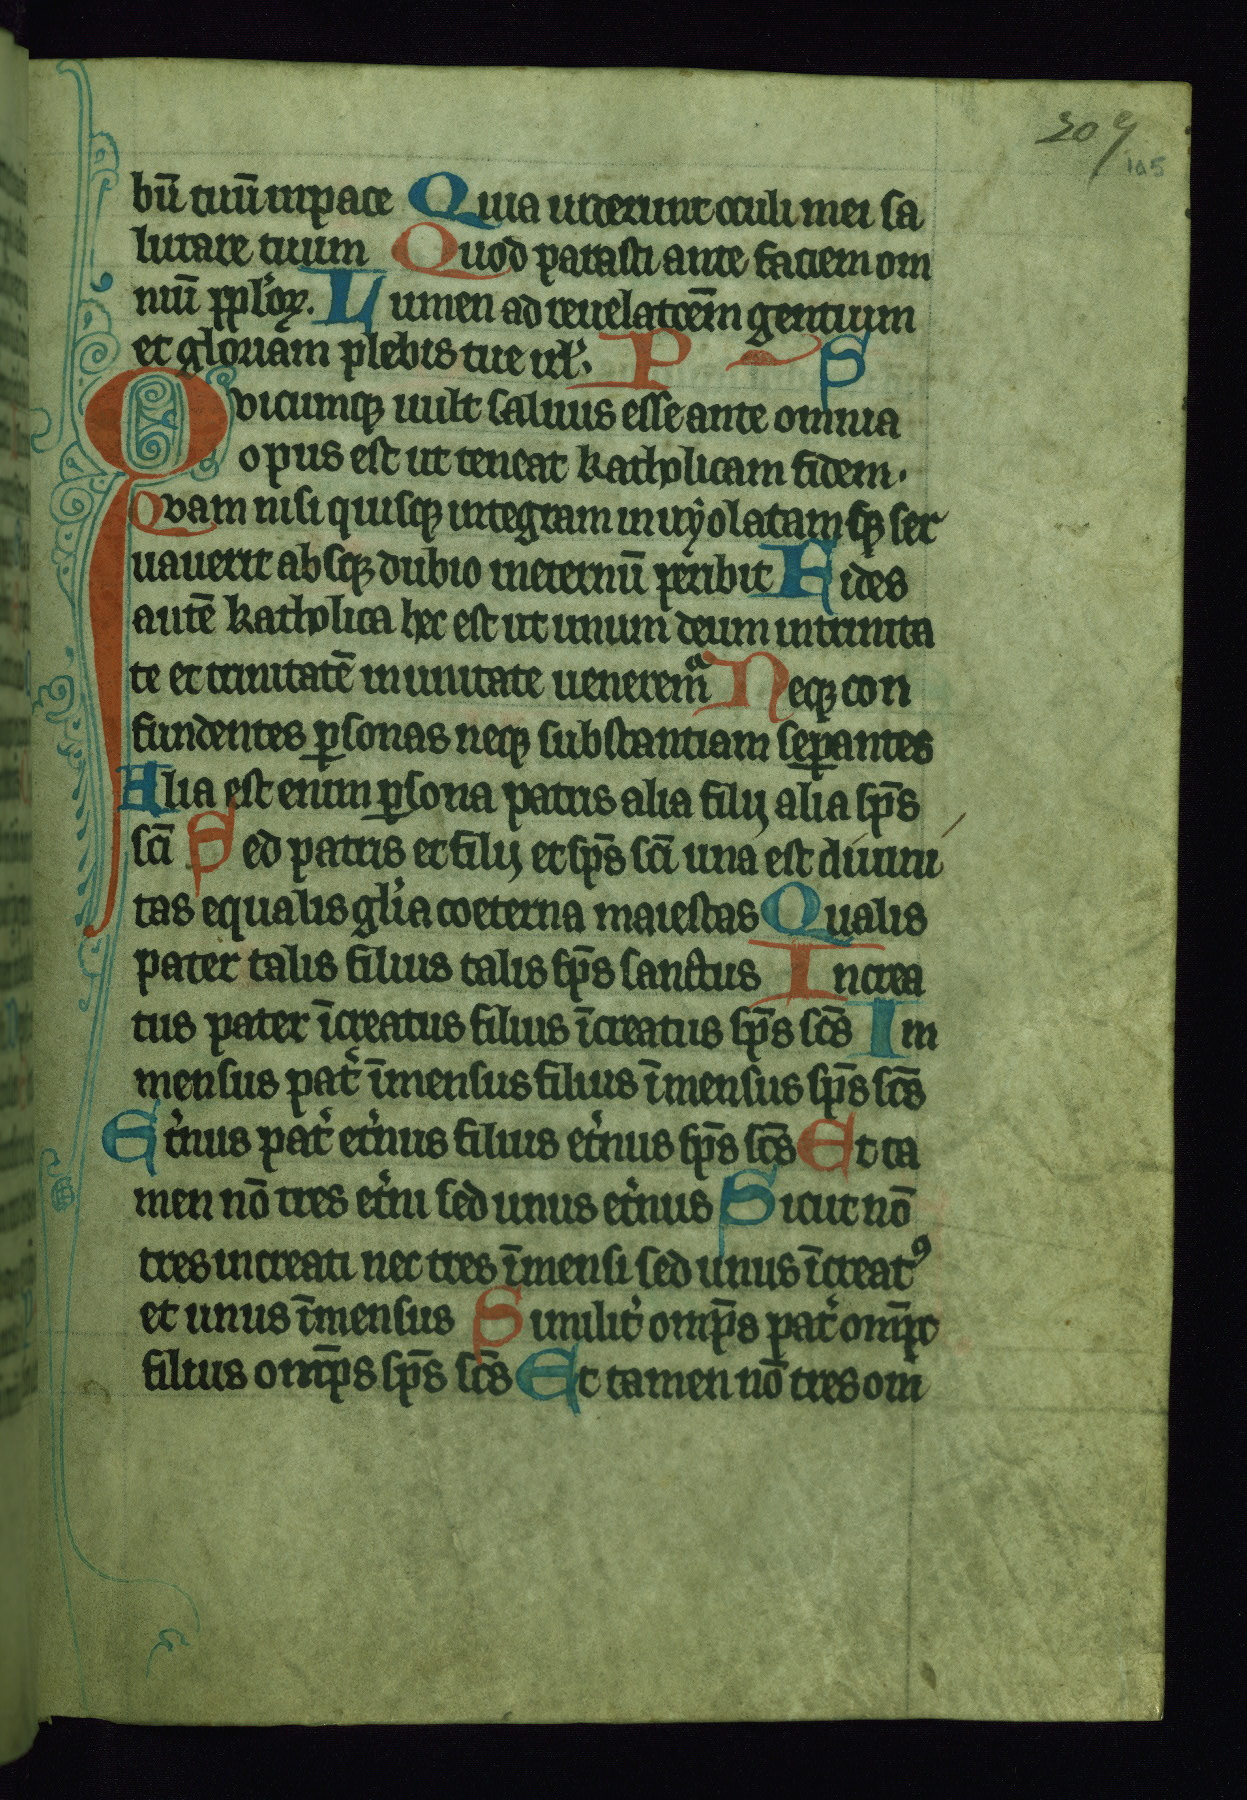 209
185
bū tuū in pace Quia uiderunt oculi mei sa
lutare tuum Quod parasti ante faciem om
niū pplor̄. Lumen ad reuelatōem gentium
et gloriam plebis tue isrl̄. P S
Qvicumq; uult saluus esse ante omnia
opus est ut teneat katholicam fidem.
Qvam nisi quisq; integram inuiolatamq; ser
uauerit absq; dubio ineternū peribit Fides
autē katholica hec est ut unum deum intrinita
te et trinitatē in unitate ueneremᵃ Neq; con
fundentes ꝑsonas neq; substantiam seꝑantes
Alia est enim ꝑsona patris alia filij alia sp̄s
sc̄i Sed patris et filij et sp̄s sc̄i una est diuini
tas equalis gl̄ia coeterna maiestas Qualis
pater talis filius talis sp̄s sanctus Increa
tus pater īcreatus filius īcreatus sp̄s sc̄s Im
mensus pat̾ īmensus filius īmensus sp̄s sc̄s
Et̾nus pat̾ et̾nus filius et̾nus sp̄s sc̄s Et ta
men nō tres et̾ni sed unus et̾nus Sicut nō
tres increati nec tres īmensi sed unus īcreatꝰ
et unus īmensus Similit̾ omp̄s pat̾ omp̄s
filius omp̄s sp̄s sc̄s Et tamen nō tres om